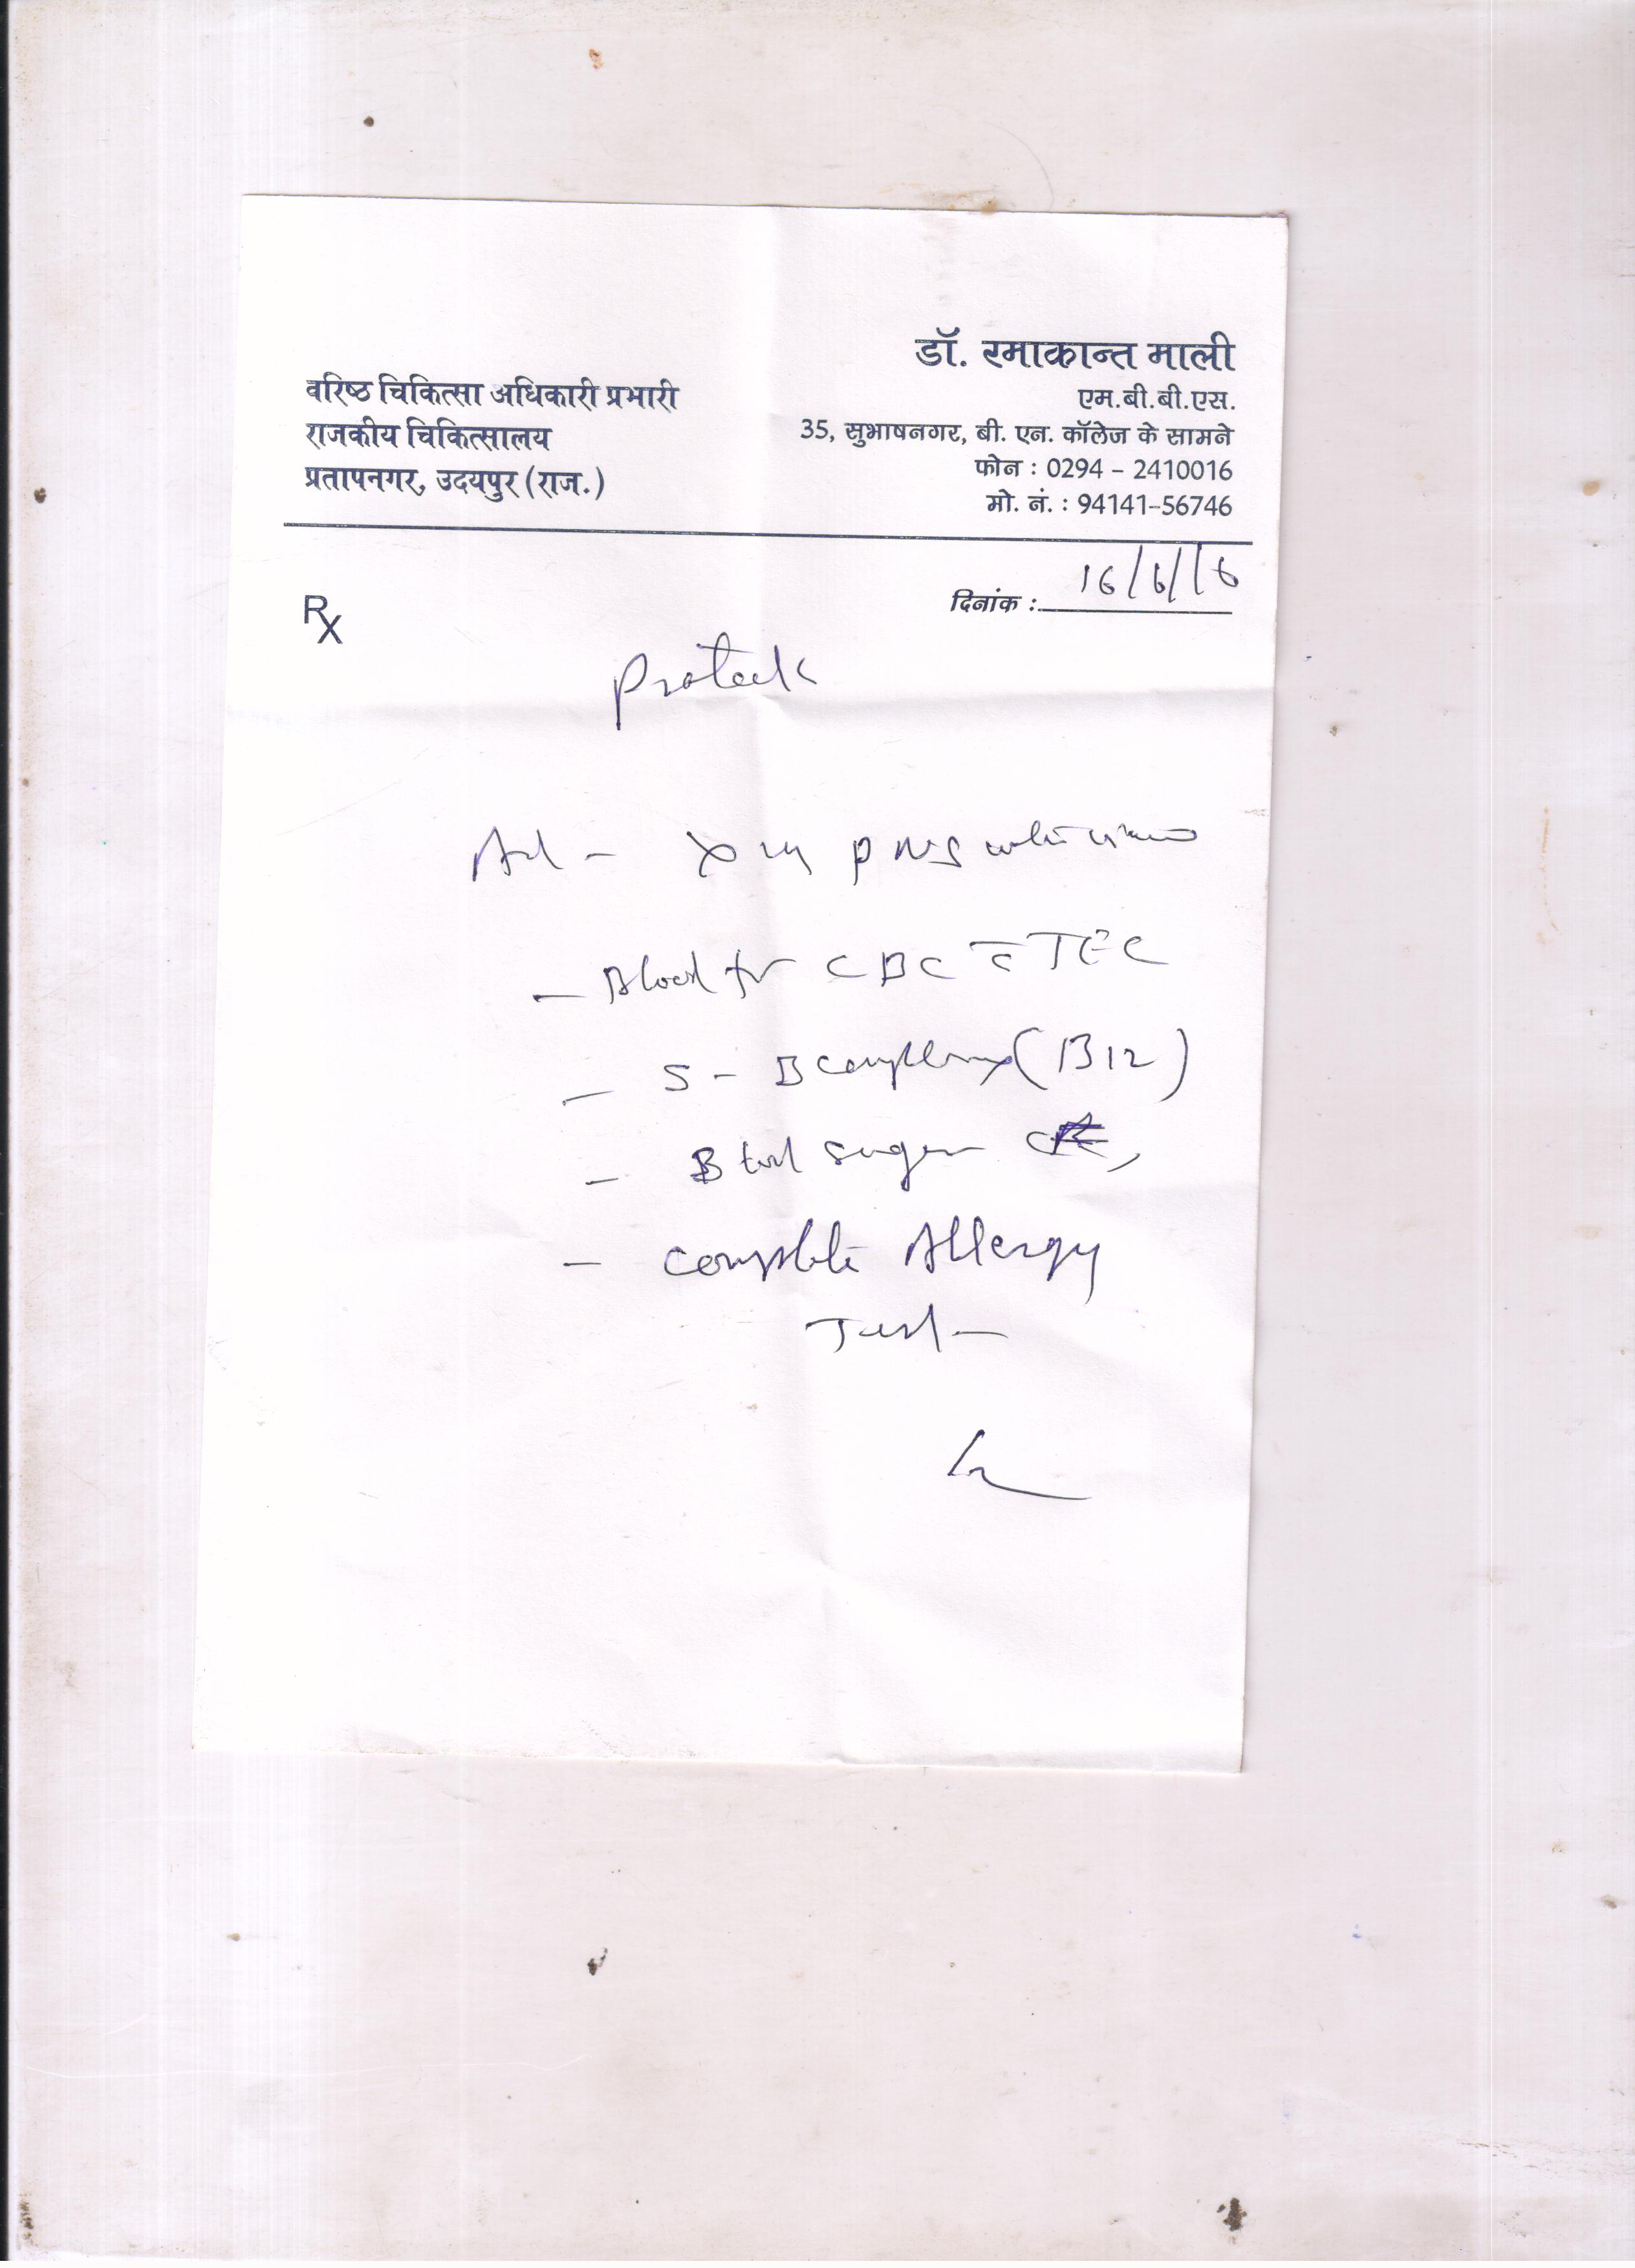 डॉ. रमाकान्त माली
एम.बी.बी.एस.
35, सुभाषनगर, बी. एन. कॉलेज के सामने
फोन : 0294 – 2410016
मो. नं. : 94141-56746
वरिष्ठ चिकित्सा अधिकारी प्रभारी
राजकीय चिकित्सालय
प्रतापनगर, उदयपुर (राज.)
Rx
दिनांक : 16/6/16
Prateek
Ad - X ray PNS
- Blood for CBC c̄ TEC
- S - B complex (B12)
- Blood sugar
- Complete Allergy
Test -